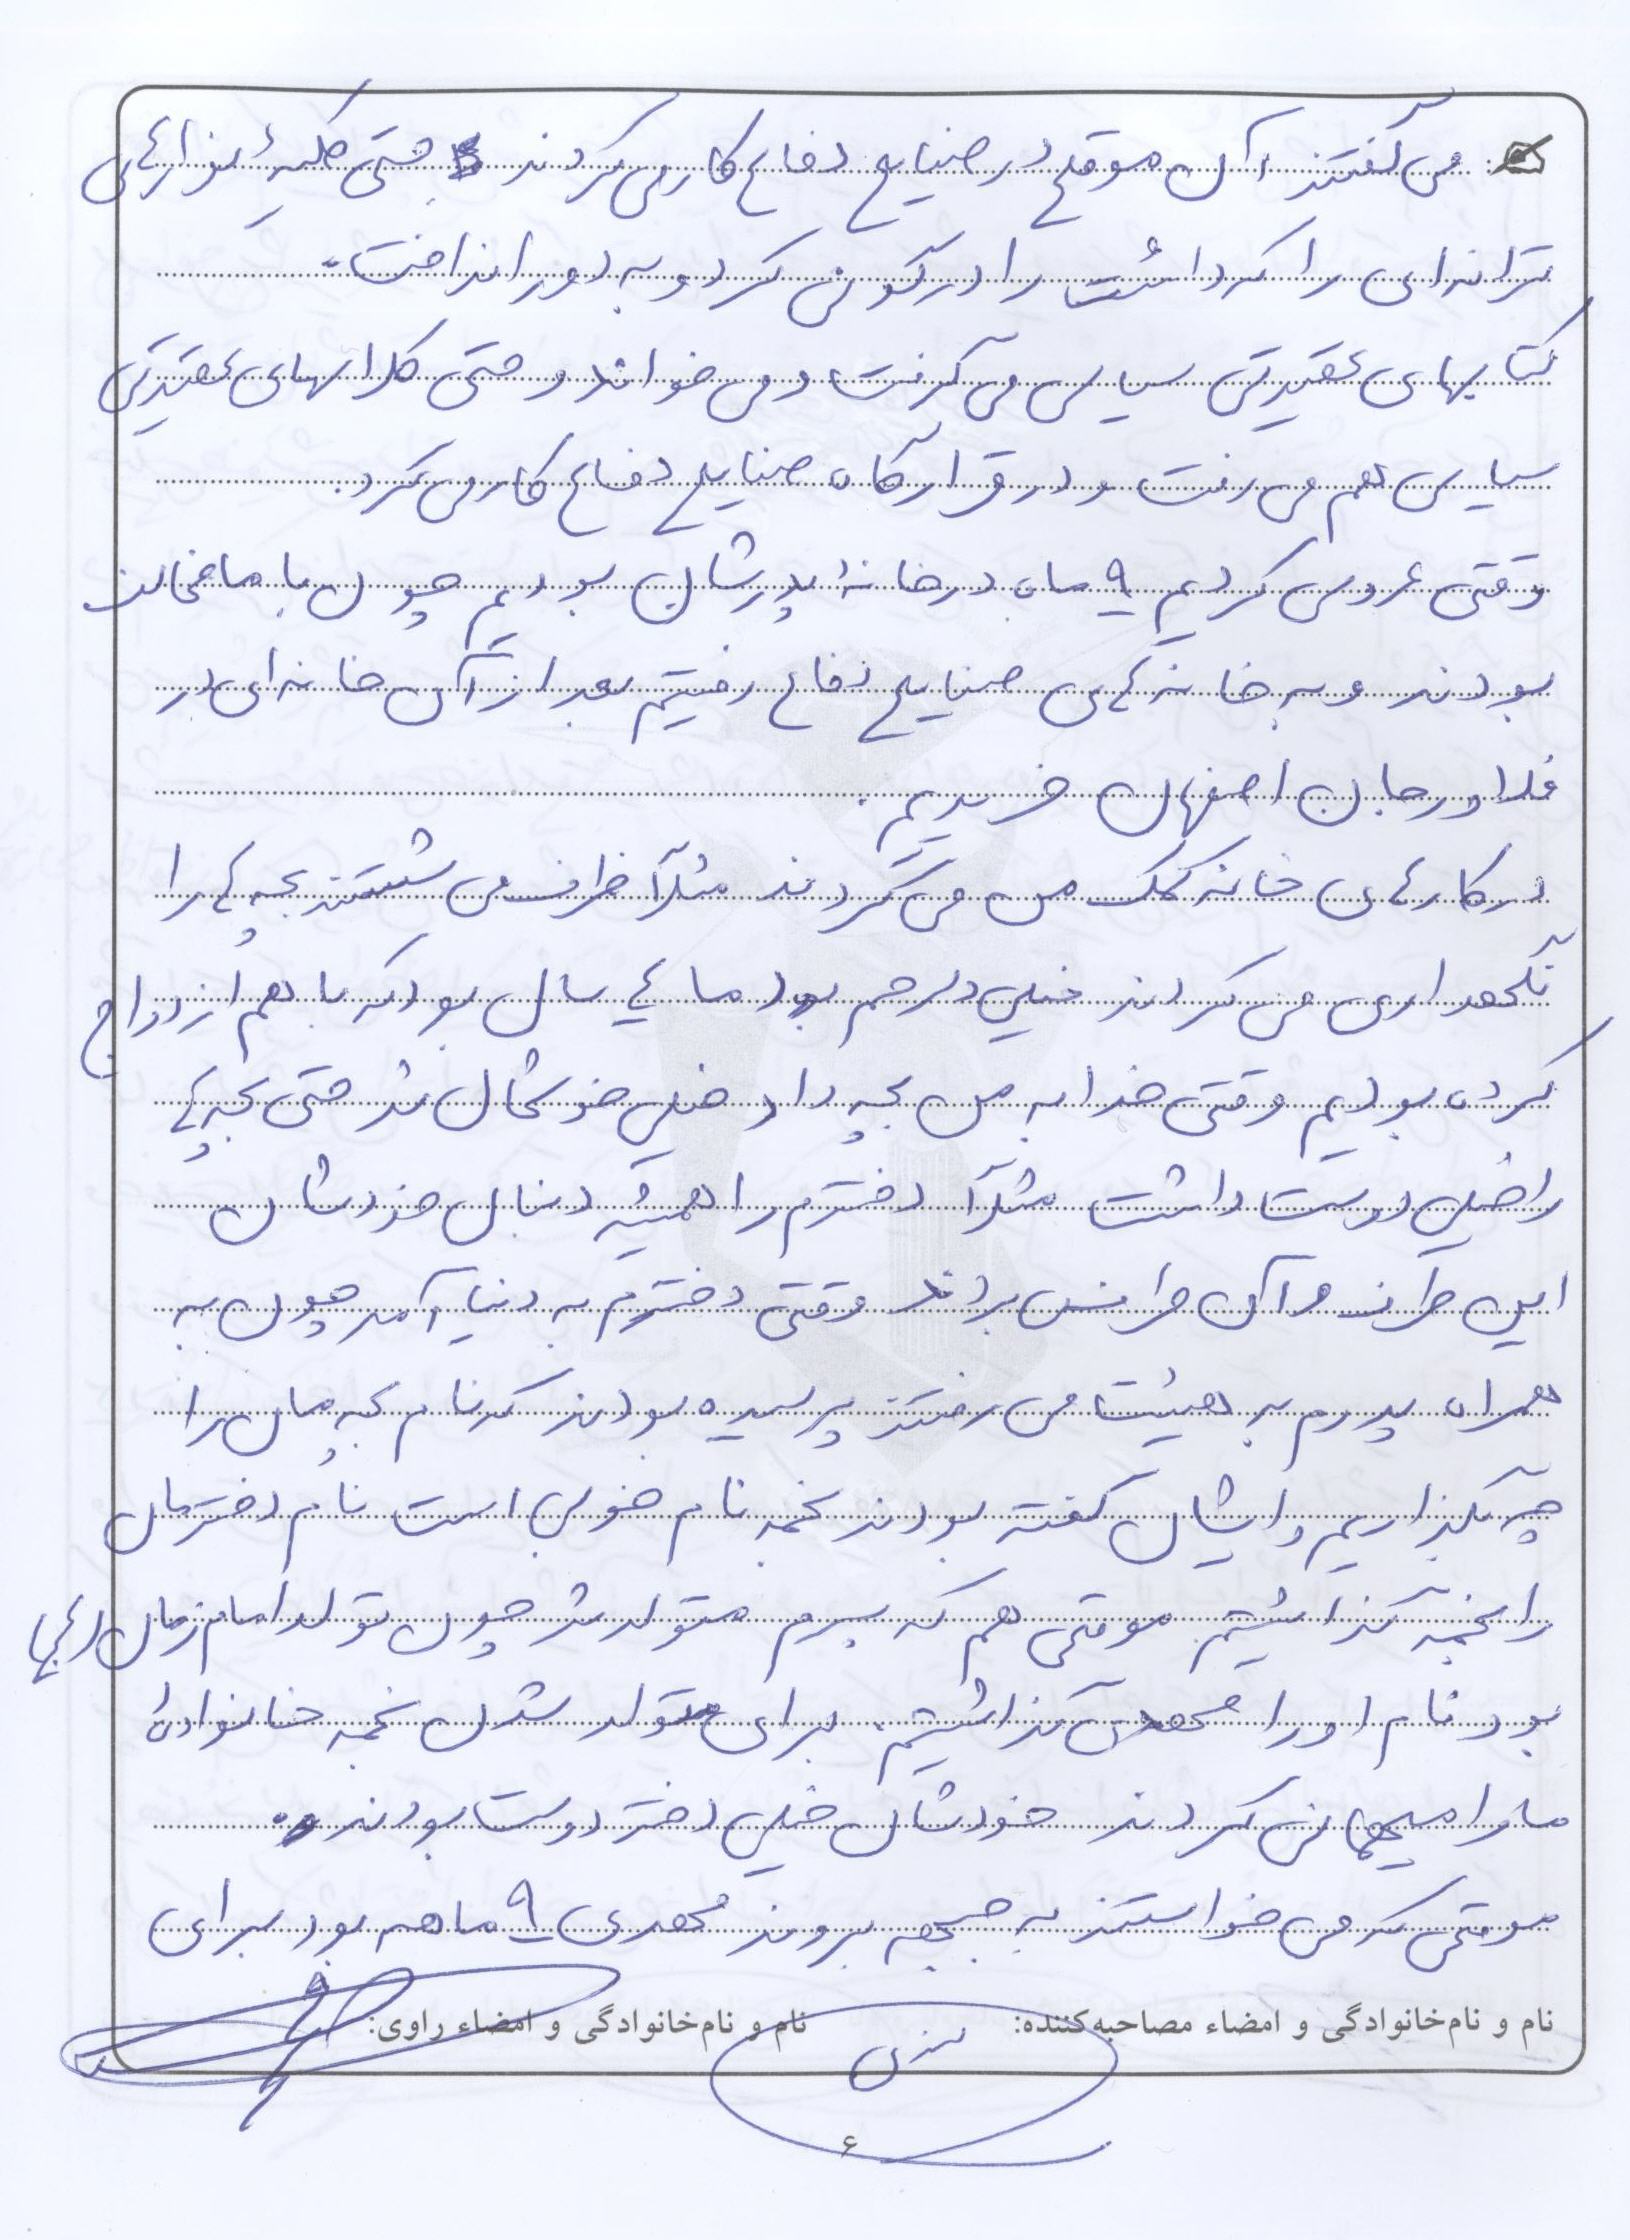 می‌گفتند آن موقع در صنایع دفاع کار می‌کردند حتی کلیهٔ نوارهای
ترانه‌ای را که داشت را در گونی کرد و به دور انداخت.
کتابهای عقیدتی سیاسی می‌گرفت و می‌خواند و حتی کلاسهای عقیدتی
سیاسی هم می‌رفت و در قرارگاه صنایع دفاع کار می‌کرد.
وقتی عروسی کردیم ۹ ماه در خانهٔ پدرشان بودیم چون با ما مخالف
بودند و به خانه‌های صنایع دفاع رفتیم بعد از آن خانه‌ای در
فلاورجان اصفهان خریدیم.
در کارهای خانه کمک من می‌کردند مثلاً ظرف می‌شستند بچه‌ها را
نگهداری می‌کردند خیلی دلرحم بود ما ۴ سال بود که با هم ازدواج
کرده بودیم وقتی خدا به من بچه داد خیلی خوشحال شد حتی بچه‌ها
را خیلی دوست داشت مثلاً دخترم را همیشه دنبال خودشان
این طرف و آن طرف می‌بردند وقتی دخترم به دنیا آمد چون به
همراه پدرم به هیئت می‌رفتند پرسیده بودند که نام بچه‌مان را
چه بگذاریم و ایشان گفته بودند نجمه نام خوبی است نام دخترمان
را نجمه گذاشتیم موقعی هم که پسرم متولد شد چون تولد امام زمان (عج)
بود نام او را مهدی گذاشتیم. برای متولد شدن نجمه خانوادهٔ
ما را میهمانی کردند خودشان خیلی دختر دوست بودند.
موقعی که می‌خواستند به جبهه بروند مهدی ۹ ماهه بود برای
نام و نام‌خانوادگی و امضاء مصاحبه‌کننده: نام و نام‌خانوادگی و امضاء راوی:
۶